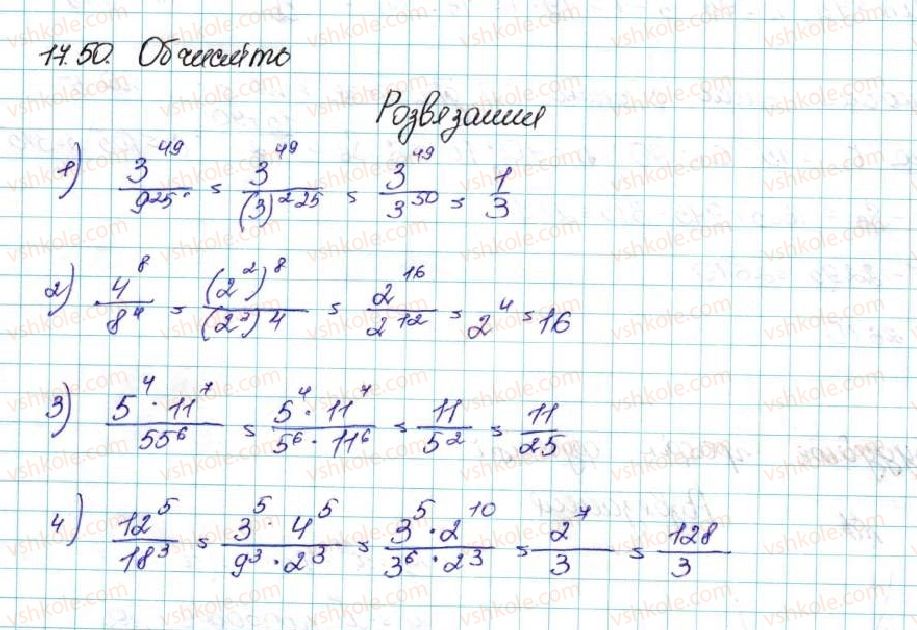 17.50. Обчисліть
Розвязання
1) 3^49 / 9^25 = 3^49 / (3)^2 25 = 3^49 / 3^50 = 1/3
2) 4^8 / 8^4 = (2^2)^8 / (2^3)^4 = 2^16 / 2^12 = 2^4 = 16
3) 5^4 · 11^7 / 55^6 = 5^4 · 11^7 / 5^6 · 11^6 = 11 / 5^2 = 11/25
4) 12^5 / 18^3 = 3^5 · 4^5 / 9^3 · 2^3 = 3^5 · 2^10 / 3^6 · 2^3 = 2^7 / 3 = 128/3